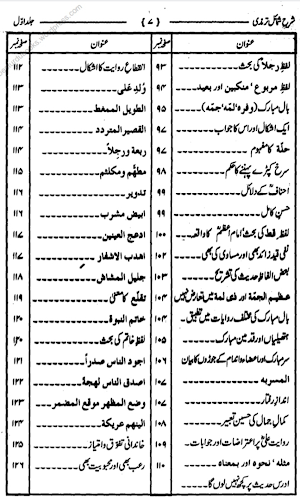 شرح شمائل ترمذی {۷} جلد اوّل
عنوان صفحہ نمبر
لفظ رجلاً کی بحث ۹۳
لفظ مربوع ' منکبین اور بعید ۹۴
بال مبارک (وفرہ ' لمّہ ' جمّہ) ۹۵
ایک اشکال اور اس کا جواب ۹۷
حلّۃ کا مفہوم ۹۷
سرخ کپڑے پہننے کا حکم ۹۸
احناف کے دلائل ۹۹
حسن کامل ۹۹
لفظ قط کی بحث ' امام اعظم کا واقعہ ۱۰۰
نفی قید زائد بھی اور مساوی کی بھی ۱۰۲
بعض الفاظِ حدیث کی تشریح ۱۰۳
عظیم الجمّۃ اور ذی لمۃ میں تعارض نہیں ۱۰۴
بال مبارک کی مختلف روایات میں تطبیق ۱۰۴
ہتھیلیاں اور قدمین مبارک ۱۰۵
سر مبارک اور اعضاء و اندام کے جوڑوں کا بیان ۱۰۶
المسربہ ۱۰۷
اندازِ رفتار ۱۰۷
کمالِ جمال کی حسین تعبیر ۱۰۸
روایت علیؓ پر اعتراضات اور جوابات ۱۰۹
مثلہ ' نحوہ اور بمعناہ ۱۱۰
اور حدیث پر کچھ نہیں لوں گا
عنوان صفحہ نمبر
انقطاع روایت کا اشکال ۱۱۲
ولد علی ۱۱۳
الطویل الممغط ۱۱۳
القصیر المتردد ۱۱۴
ربعۃ و رجلاً ۱۱۴
مطہّم و مکلثم ۱۱۵
تدویر ۱۱۶
ابیض مشرب ۱۱۶
ادعج العینین ۱۱۷
اھدب الاشفار ۱۱۷
جلیل المشاش ۱۱۸
تقلّع کا معنی ۱۱۹
خاتم النبوۃ ۱۲۰
لفظ خاتم کی بحث ۱۲۰
اجود الناس صدراً ۱۲۱
اصدق الناس لھجۃ ۱۲۲
وضع المظھر موقع المضمر ۱۲۳
الینھم عریکۃ ۱۲۴
خاندانی تفوّق و امتیاز ۱۲۵
رعب بھی اور محبوبیت بھی ۱۲۶